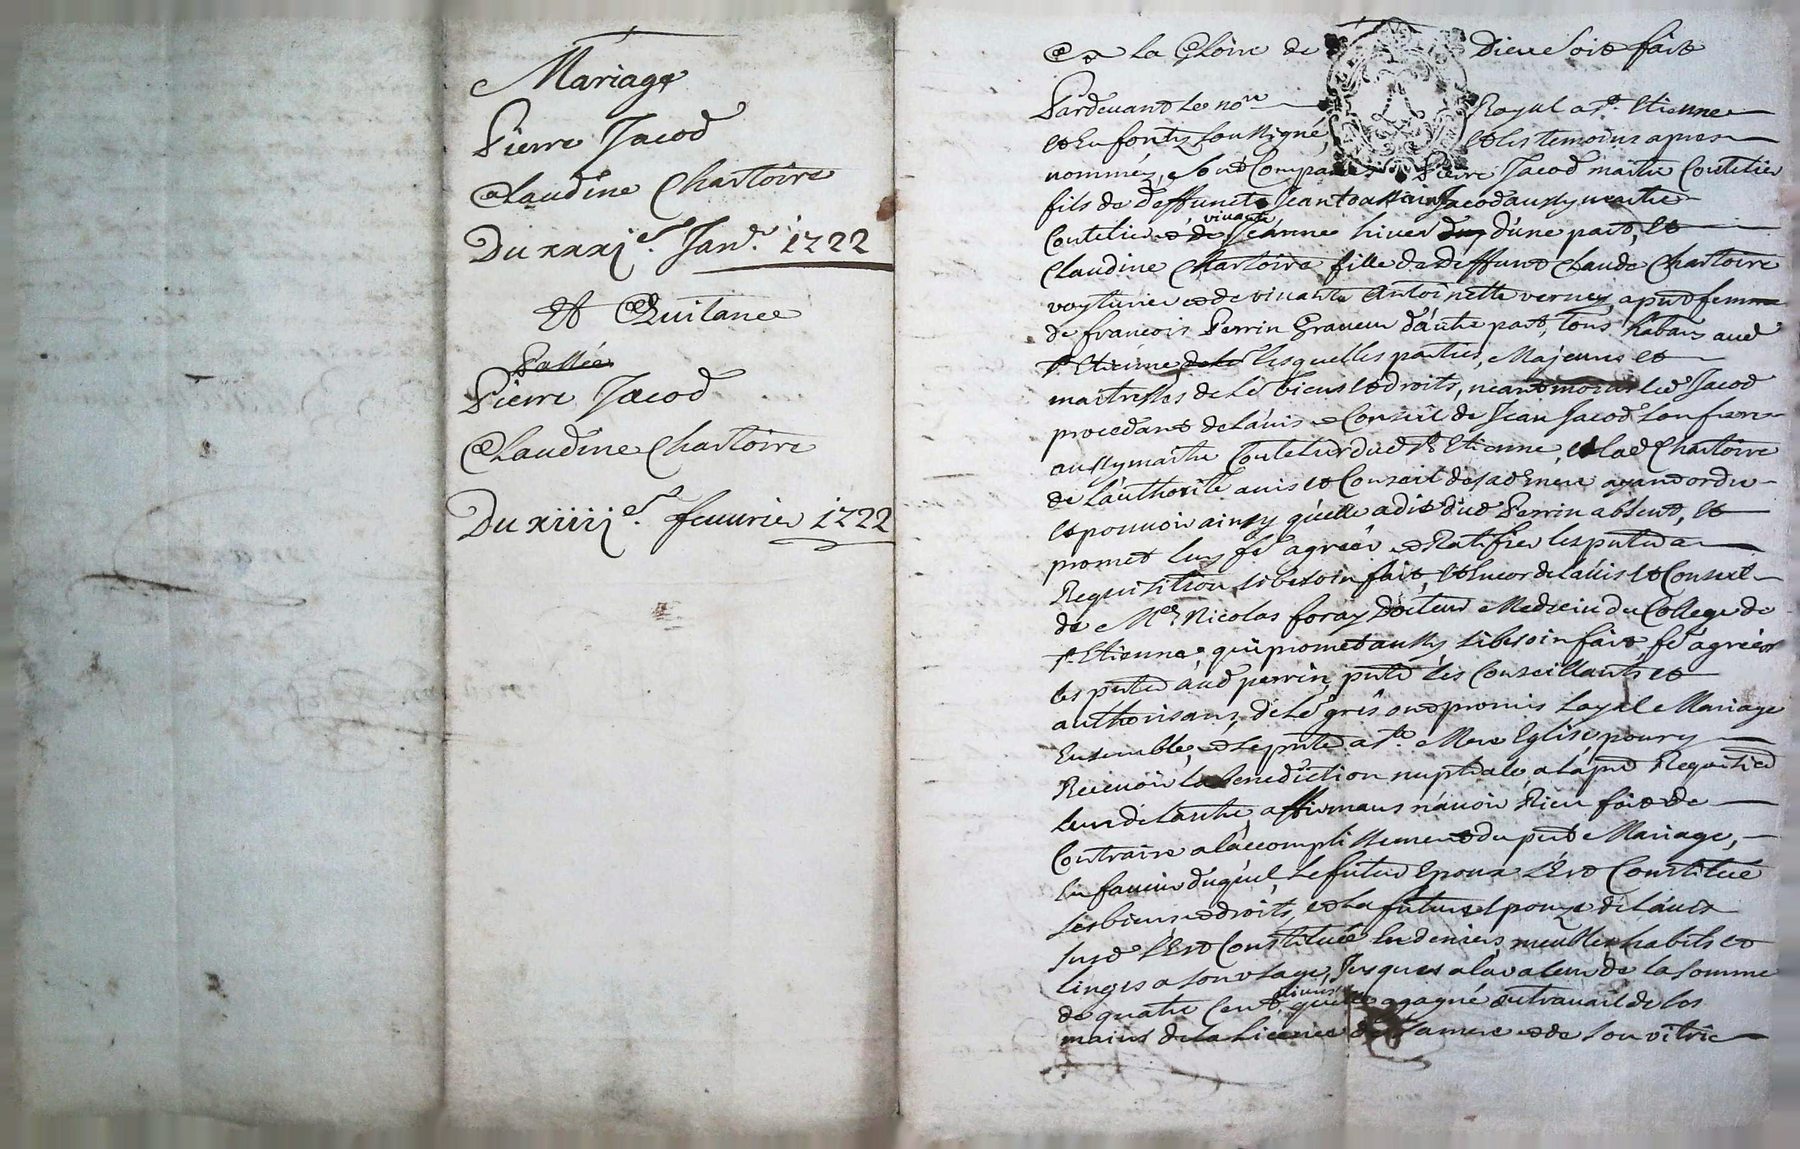 Mariage
Pierre Jacod
Claudine Chartoire
Du xxxj.e Janr. 1722
Et Quitance
Passée
Pierre Jacod
Claudine Chartoire
Du xiiij.e feuurier 1722
A La Gloire de Dieu Soit fait
Pardeuant Le nore Royal a St. Etienne
et En fontz Soussigné, et les temoins apres
nommés, Sont Comparus Pierre Jacod maitre Coutelier
fils de deffunct Jean Jacod aussy maitre
Coutelier et de viuante Jeanne hiuer d'une part, et
Claudine Chartoire fille de deffunt Claude Chartoire
voyturier et de viuante Antoinette verney, a pnt femme
de francois Perrin Graueur d'autre part, tous habans aud
St. Etienne lesquelles parties, Majeures et
maitresses de Leurs biens et droits, neantmoins led Jacod
procedant de L'auis et Conseil de Jean Jacod Son frere
aussy maitre Coutelier dud St. Etienne, et lad Chartoire
de L'authorité auis et Conseil de sad mere ayant ordre
et pouuoir ainsy qu'elle a dit dud Perrin absent, et
promet luy fe agreer et Ratifier les pntes a
Requisition Si besoin fait, et Encor de L'auis et Conseil
de Me Nicolas foray docteur Medecin du College de
St. Etienne qui promet aussy Si besoin fait fe agreer
les pntes aud perrin, pnts les Conseillants et
authorisans, de Leur gré ont promis Loyal Mariage
Ensemble, et Se pnter a Ste. Mere Eglise pour y
Receuoir La benediction nuptiale, a La pre Requisition
L'un de L'autre, affirmans n'auoir Rien fait de
Contraire a L'accomplissement du pnt Mariage,
En faueur duquel, Le futur Epoux S'Est Constitué
Ses biens et droits, et La future Epouze de L'auis
Susd S'Est Constituée En deniers, meubles, habits et
linges a Son vsage, Jusques a La valeur de La Somme
de quatre Cent liures qu'elle a gagné du trauail de Ses
mains de La Licence de Sa mere et de Son vitric